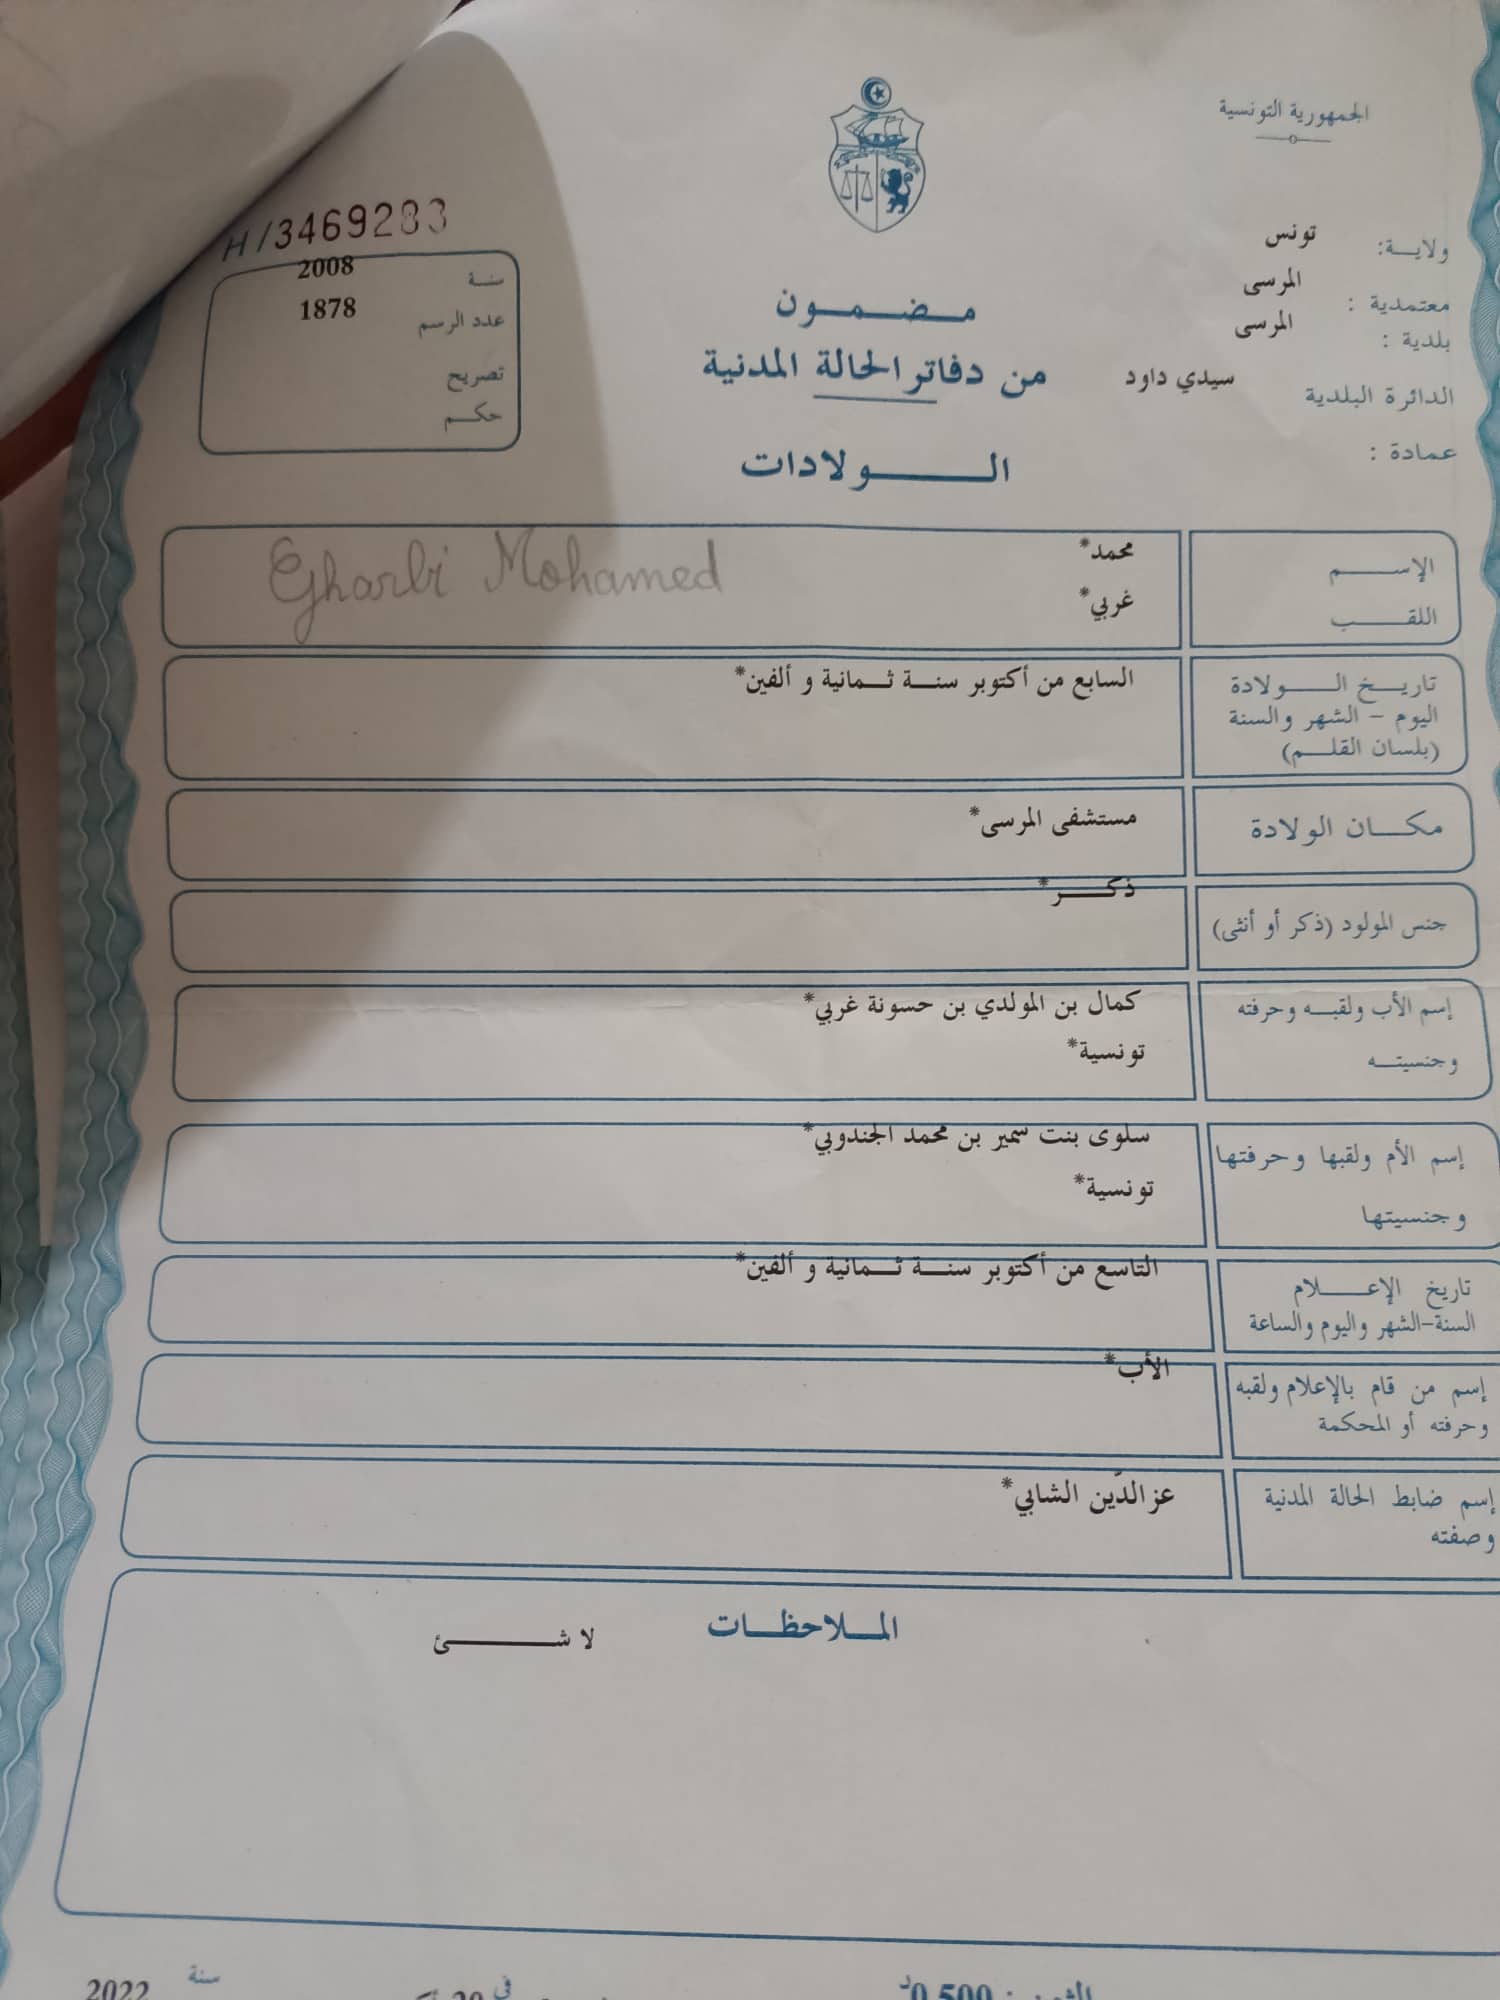 الجمهورية التونسية
ولايـــة: تونس
معتمدية : المرسى
بلدية : المرسى
الدائرة البلدية سيدي داود
عمادة :
H/3469283
سنـة 2008
عدد الرسم 1878
تصريح
حكـــم
مـــضـــمـــون
من دفاتر الحالة المدنية
الـــــــولادات
الإســـــم محمد*
اللقـــــب غربي*
Gharbi Mohamed
تاريـــخ الـــــولادة السابع من أكتوبر سنـــة ثـــمانية و ألفين*
اليوم - الشهر والسنة
(بلسان القلـــم)
مكـــان الولادة مستشفى المرسى*
جنس المولود (ذكر أو أنثى) ذكـــــر*
إسم الأب ولقبـــه وحرفته كمال بن المولدي بن حسونة غربي*
وجنسيتـــه تونسية*
إسم الأم ولقبها وحرفتها سلوى بنت سمير بن محمد الجندوبي*
وجنسيتها تونسية*
تاريخ الإعـــــلام التاسع من أكتوبر سنـــة ثـــمانية و ألفين*
السنة-الشهر واليوم والساعة
إسم من قام بالإعلام ولقبه الأب*
وحرفته أو المحكمة
إسم ضابط الحالة المدنية عزالدّين الشابي*
وصفته
المـــلاحظـــات
لا شـــــــئ
0,500د
في 20
سنة 2022